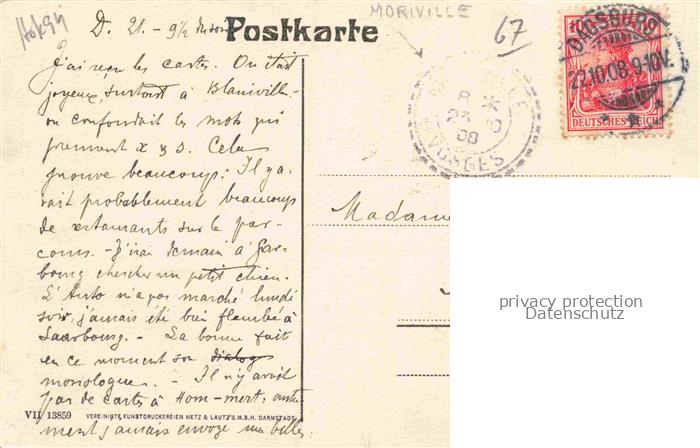 MORIVILLE
67
D. 21. - 9½ du soir
Postkarte
J'ai reçu les cartes. On était
joyeux, surtout à Blainville
on confondait les mots qui
prennent x & s. Cela
prouve beaucoup: Il y a.
vait probablement beaucoup
de restaurants sur le par-
cours. - J'irai demain à Sar-
bourg chercher un petit chien.
L'Auto n'a pas marché lundi
soir, j'aurais été bien flambé à
Saarbourg. - La bonne fait
en ce moment son dialogue
monologue. - Il n'y avait
pas de cartes à Hom-mert, autre
ment j'aurais envoyé une belle.
Madame
DAGSBURG
22.10.08.9-10V.
10
DEUTSCHES REICH
8
23
08
VOSGES
privacy protection
Datenschutz
VII 13859 VEREINIGTE KUNSTDRUCKEREIEN METZ & LAUTZ G.M.B.H. DARMSTADT